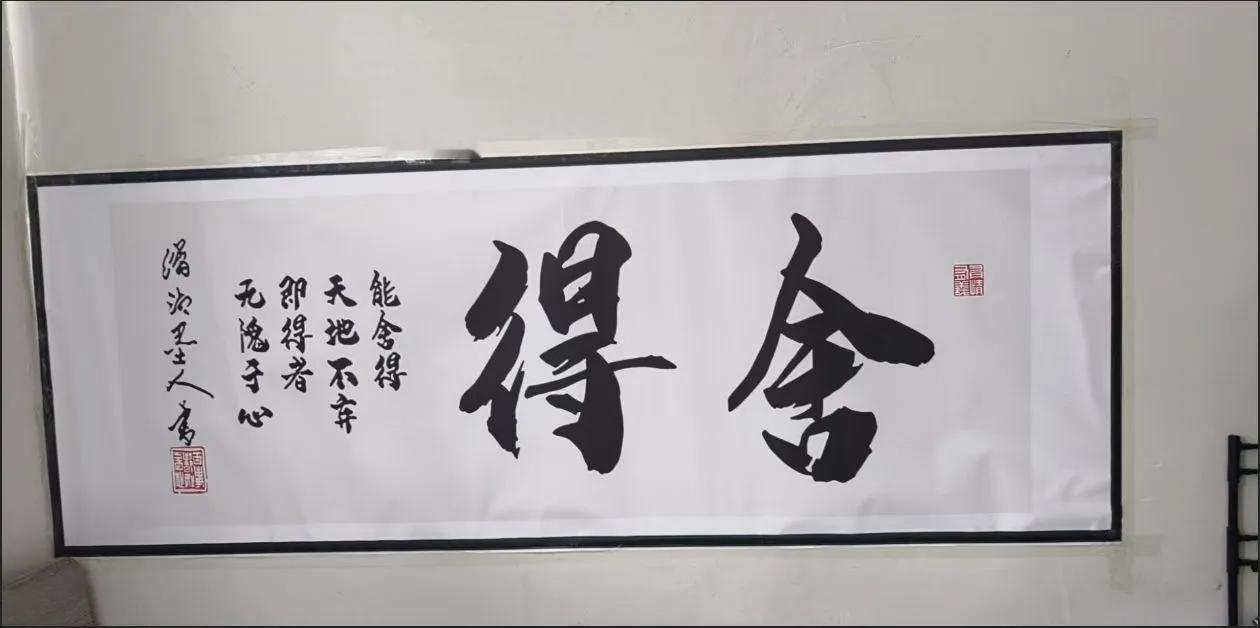 舍得
能舍得
天地不弃
即得者
无愧于心
墨人书